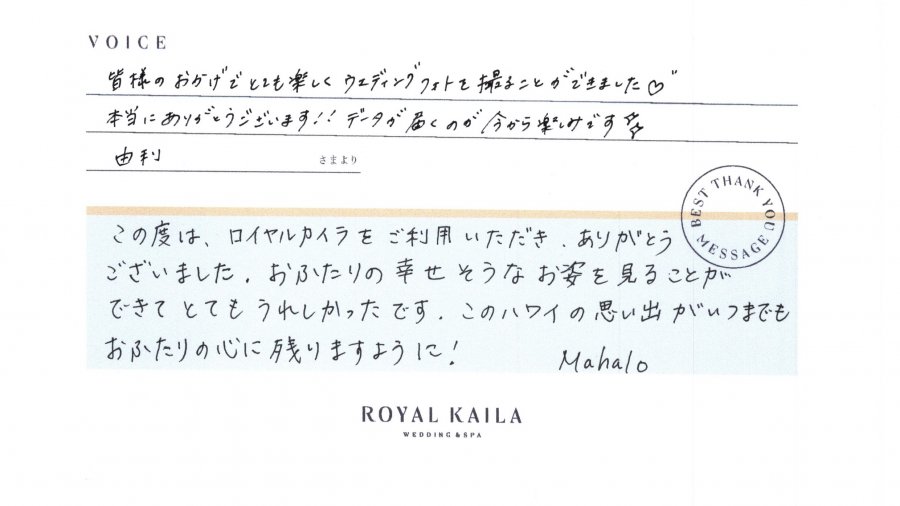 VOICE
皆様のおかげでとても楽しくウエディングフォトを撮ることができました♡
本当にありがとうございます!! データが届くのが今から楽しみです
由利 さまより
BEST THANK YOU MESSAGE
この度は、ロイヤルカイラをご利用いただき、ありがとう
ございました。おふたりの幸せそうなお姿を見ることが
できてとてもうれしかったです。このハワイの思い出がいつまでも
おふたりの心に残りますように!
Mahalo
ROYAL KAILA
WEDDING & SPA